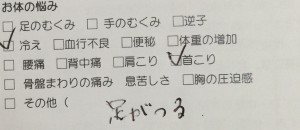 お体の悩み
□足のむくみ □手のむくみ □逆子
☑冷え □血行不良 □便秘 □体重の増加
□腰痛 □背中痛 □肩こり ☑首こり
□骨盤まわりの痛み 息苦しさ □胸の圧迫感
□その他( 足がつる